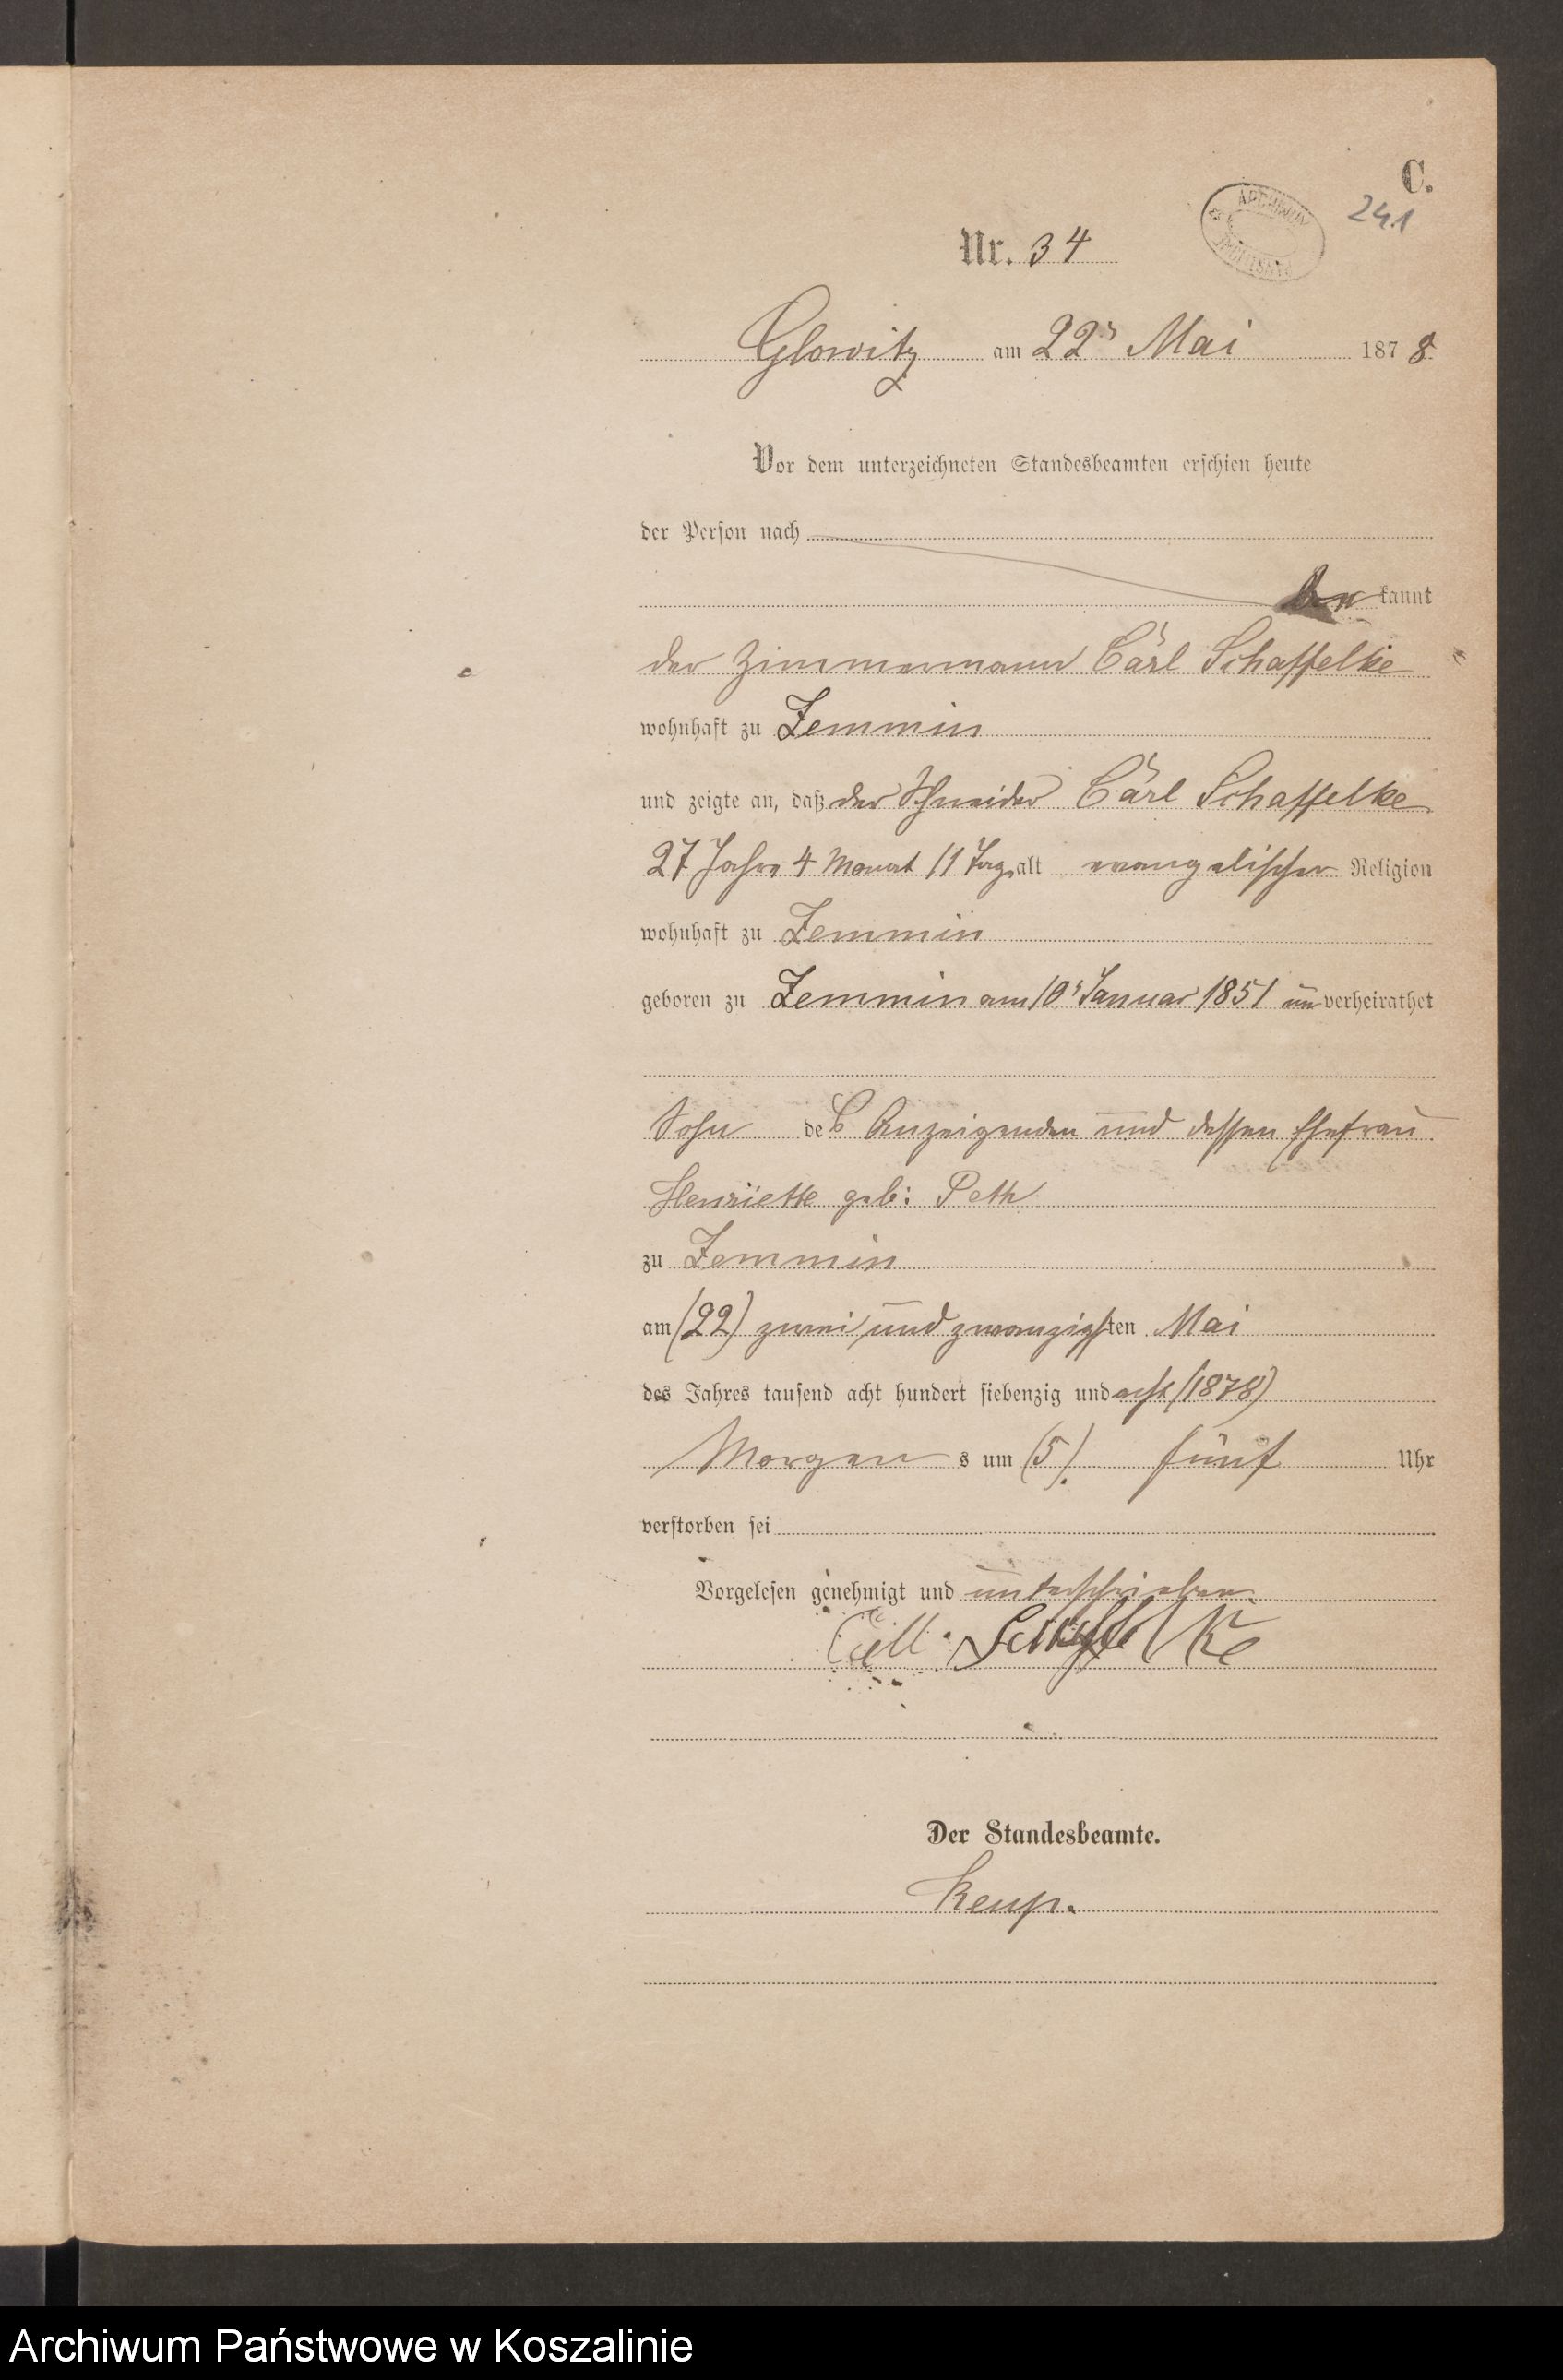 C.
241
ARCHIWUM
Nr. 34
Glowitz am 22ˢ Mai 1878.
Vor dem unterzeichneten Standesbeamten erschien heute
der Person nach
be kannt
der Zimmermann Carl Schaffelke
wohnhaft zu Zemmin
und zeigte an, daß der Schneider Carl Schaffelke
27 Jahre 4 Monat 11 Tag alt evangelischer Religion
wohnhaft zu Zemmin
geboren zu Zemmin am 10ˢ Januar 1851 unverheirathet
Sohn des Anzeigenden und dessen Ehefrau
Henriette geb: Peth
zu Zemmin
am (22) zwei und zwanzigsten Mai
des Jahres tausend acht hundert siebenzig und acht (1878)
Morgens um (5) fünf Uhr
verstorben sei
Vorgelesen genehmigt und unterschrieben.
Schaffelke
Der Standesbeamte.
Keup.
Archiwum Państwowe w Koszalinie